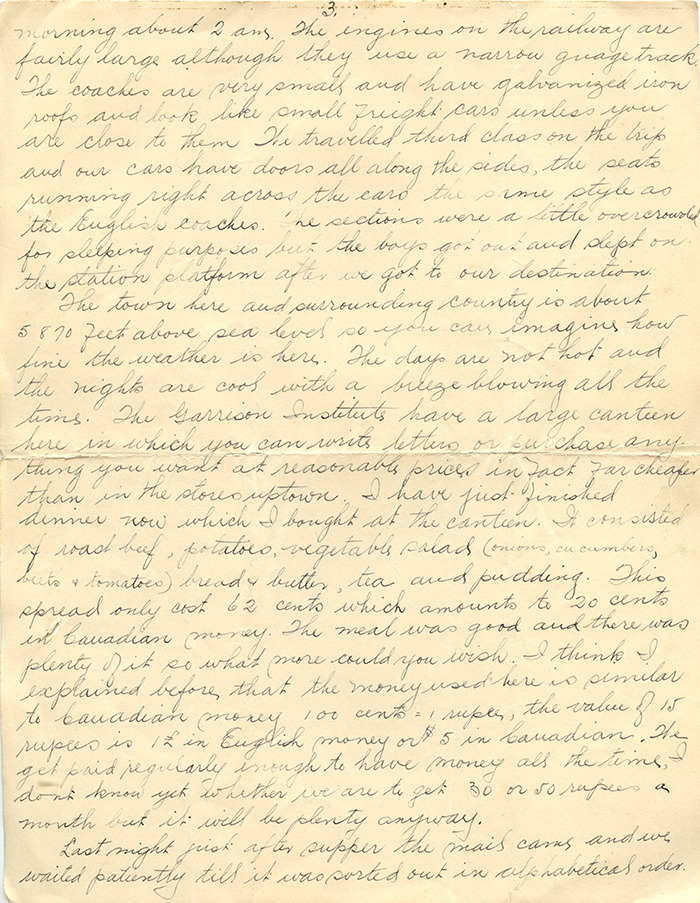 3.
morning about 2 am. The engines on the railway are
fairly large although they use a narrow guage track.
The coaches are very small and have galvanized iron
roofs and look like small freight cars unless you
are close to them. We travelled third class on the trip
and our cars have doors all along the sides, the seats
running right across the cars the same style as
the English coaches. The sections were a little overcrowded
for sleeping purposes but the boys got out and slept on
the station platform after we got to our destination.
The town here and surrounding country is about
5870 feet above sea level so you can imagine how
fine the weather is here. The days are not hot and
the nights are cool with a breeze blowing all the
time. The Garrison Institute have a large canteen
here in which you can write letters or purchase any-
thing you want at reasonable prices in fact far cheaper
than in the stores uptown. I have just finished
dinner now which I bought at the canteen. It consisted
of roast beef, potatoes, vegetable salad (onions, cucumbers,
beets & tomatoes) bread & butter, tea and pudding. This
spread only cost 62 cents which amounts to 20 cents
in Canadian money. The meal was good and there was
plenty of it so what more could you wish. I think I
explained before that the money used here is similar
to Canadian money 100 cents = 1 rupee, the value of 15
rupees is 1£ in English money or $5 in Canadian. We
get paid regularly enough to have money all the time, I
don't know yet whether we are to get 30 or 50 rupees a
month but it will be plenty anyway.
Last night just after supper the mail came and we
waited patiently till it was sorted out in alphabetical order.